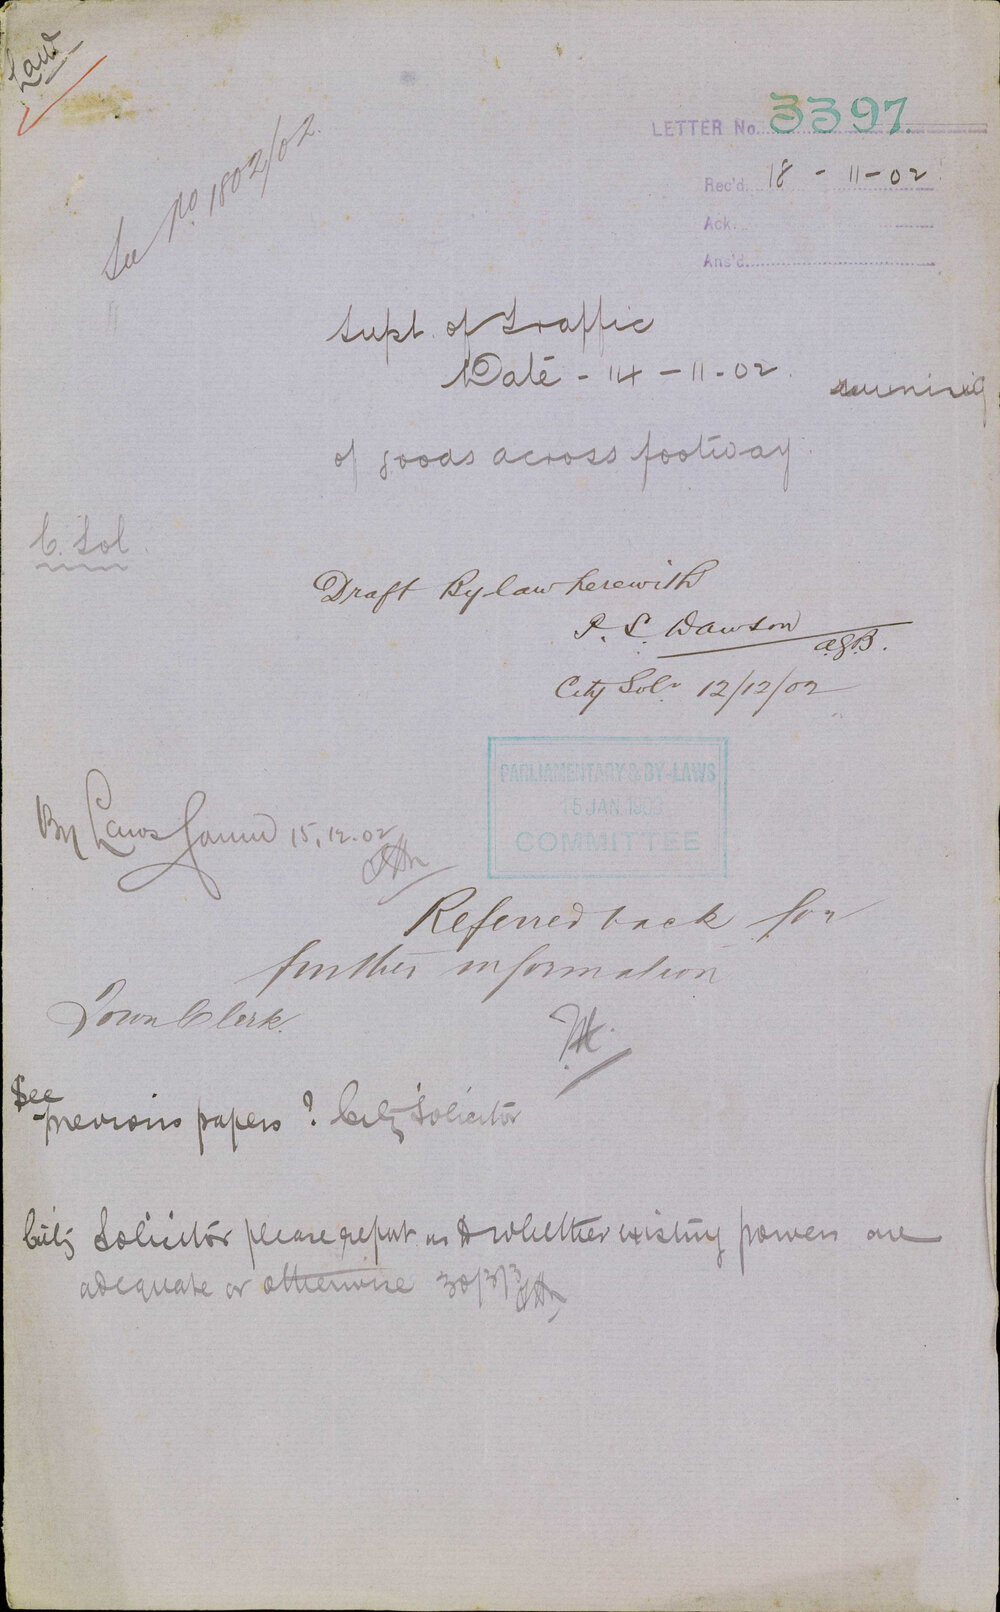 Law
See No. 1802/02.
LETTER No. 3397.
Rec'd. 18-11-02
Ack.
Ans'd.
Supt. of Traffic
Date - 14-11-02.
running
of goods across footway.
C. Sol.
Draft By law herewith
Dawson
City Solr 12/12/02
PARLIAMENTARY & BY-LAWS
15 JAN. 1903
COMMITTEE
By Laws 15.12.02
Referred back for
further information
Town Clerk.
See
previous papers? City Solicitor
City Solicitor please report as to whether existing powers are
adequate or otherwise